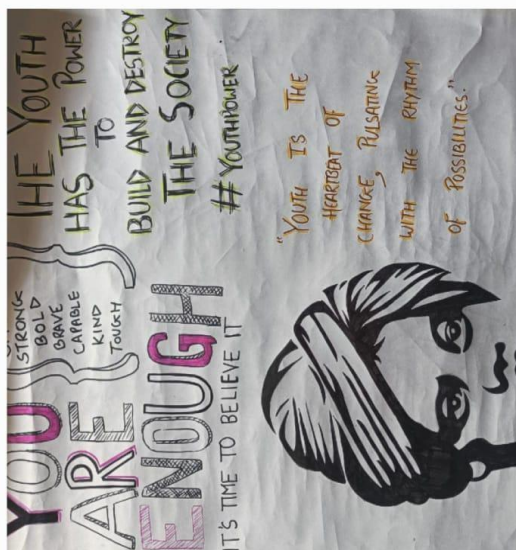 YOU
ARE
ENOUGH
IT'S TIME TO BELIEVE IT
STRONG
BOLD
BRAVE
CAPABLE
KIND
TOUGH
THE YOUTH
HAS THE POWER
TO
BUILD AND DESTROY
THE SOCIETY
#YOUTHPOWER
"YOUTH IS THE
HEARTBEAT OF
CHANGE, PULSATING
WITH THE RHYTHM
OF POSSIBILITIES."